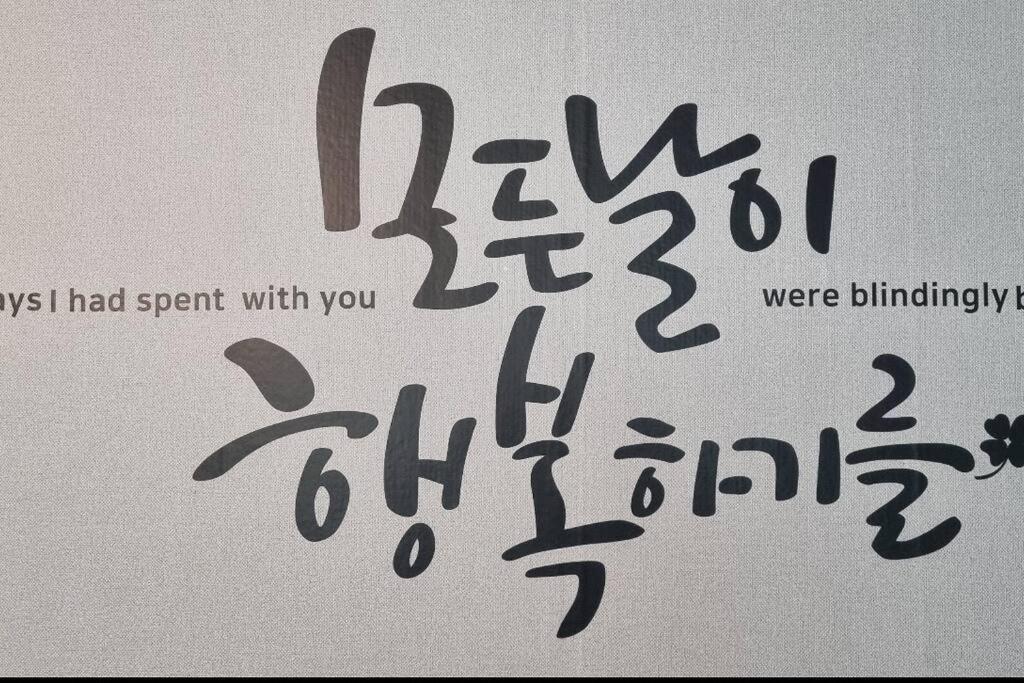 모든 날이
I had spent with you were blindingly
행복하기를